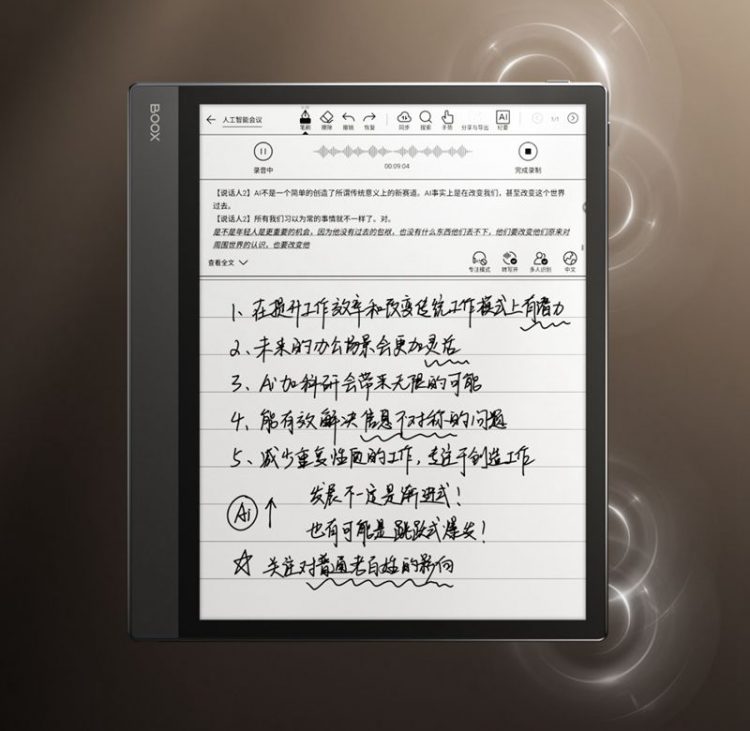 BOOX
人工智能会议
笔刷 擦除 撤销 恢复 同步 搜索 手势 分享与导出 AI 纪要 1/1
录音中 00:09:04 完成录制
【说话人2】AI不是一个简单的创造了所谓传统意义上的新赛道。AI事实上是在改变我们，甚至改变这个世界
过去。
【说话人2】所有我们习以为常的事情就不一样了。对。
是不是年轻人是更重要的机会，因为他没有过去的包袱，也没有什么东西他们丢不下，他们要改变他们原来对
周围世界的认识，也要改变他
查看全文 专注模式 转写开 多人识别 中文
1、在提升工作效率和改变传统工作模式上有潜力
2、未来的办公场景会更加灵活
3、Ai加科研会带来无限的可能
4、能有效解决信息不对称的问题
5、减少重复性质的工作，专注于创造工作
发展不一定是渐进式！
Ai ↑
也有可能是跳跃式爆发！
☆ 关注对普通老百姓的影响